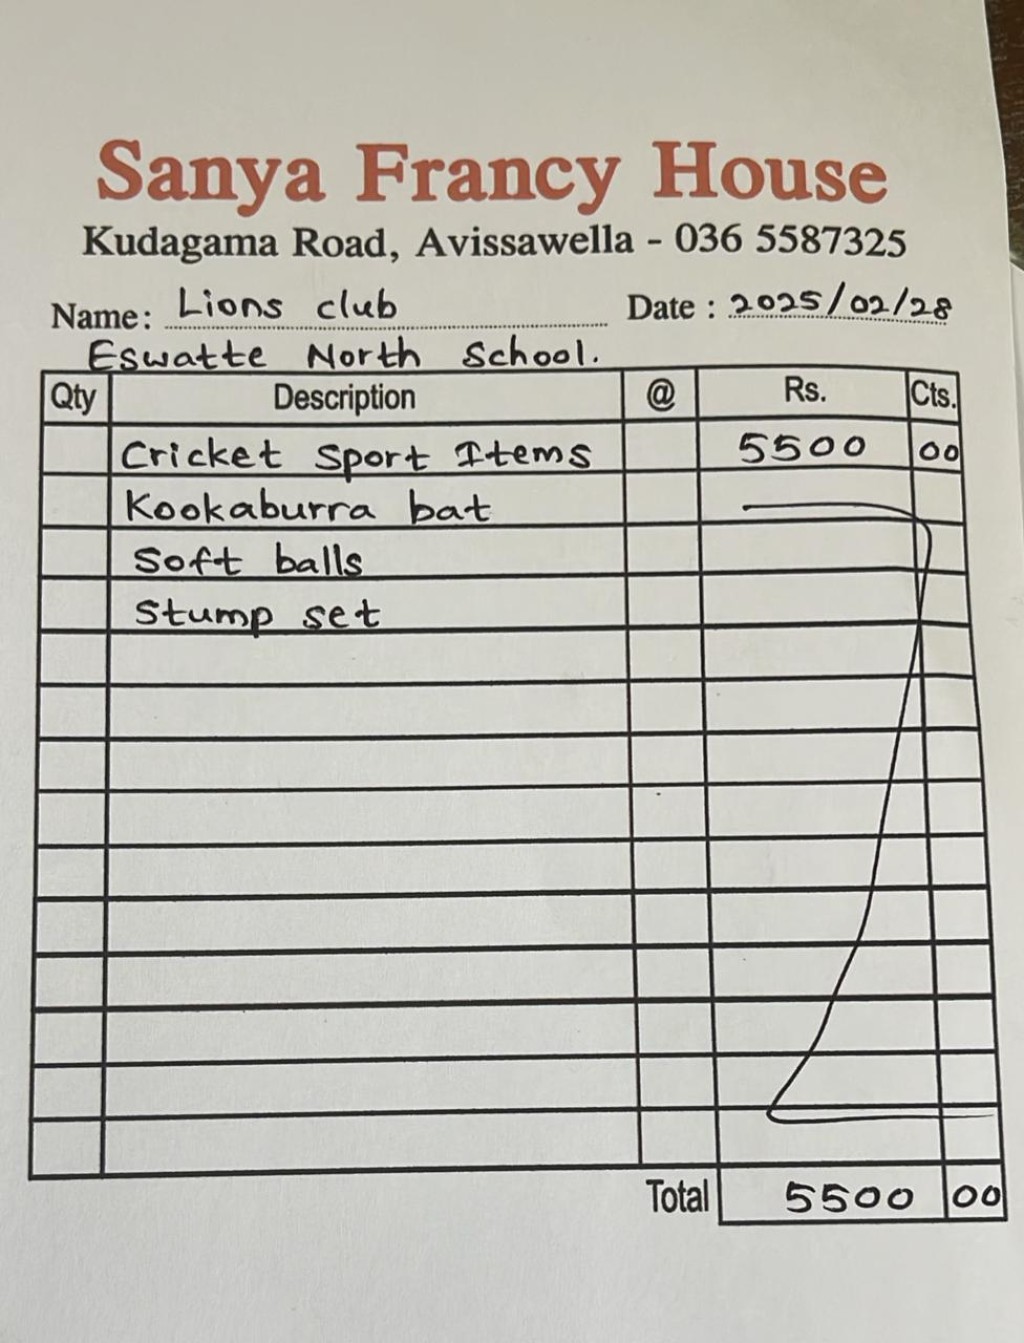 Sanya Francy House
Kudagama Road, Avissawella - 036 5587325
Name: Lions club Date : 2025/02/28
Eswatte North School.
Qty Description @ Rs. Cts.
Cricket Sport Items 5500 00
Kookaburra bat
Soft balls
Stump set
Total 5500 00